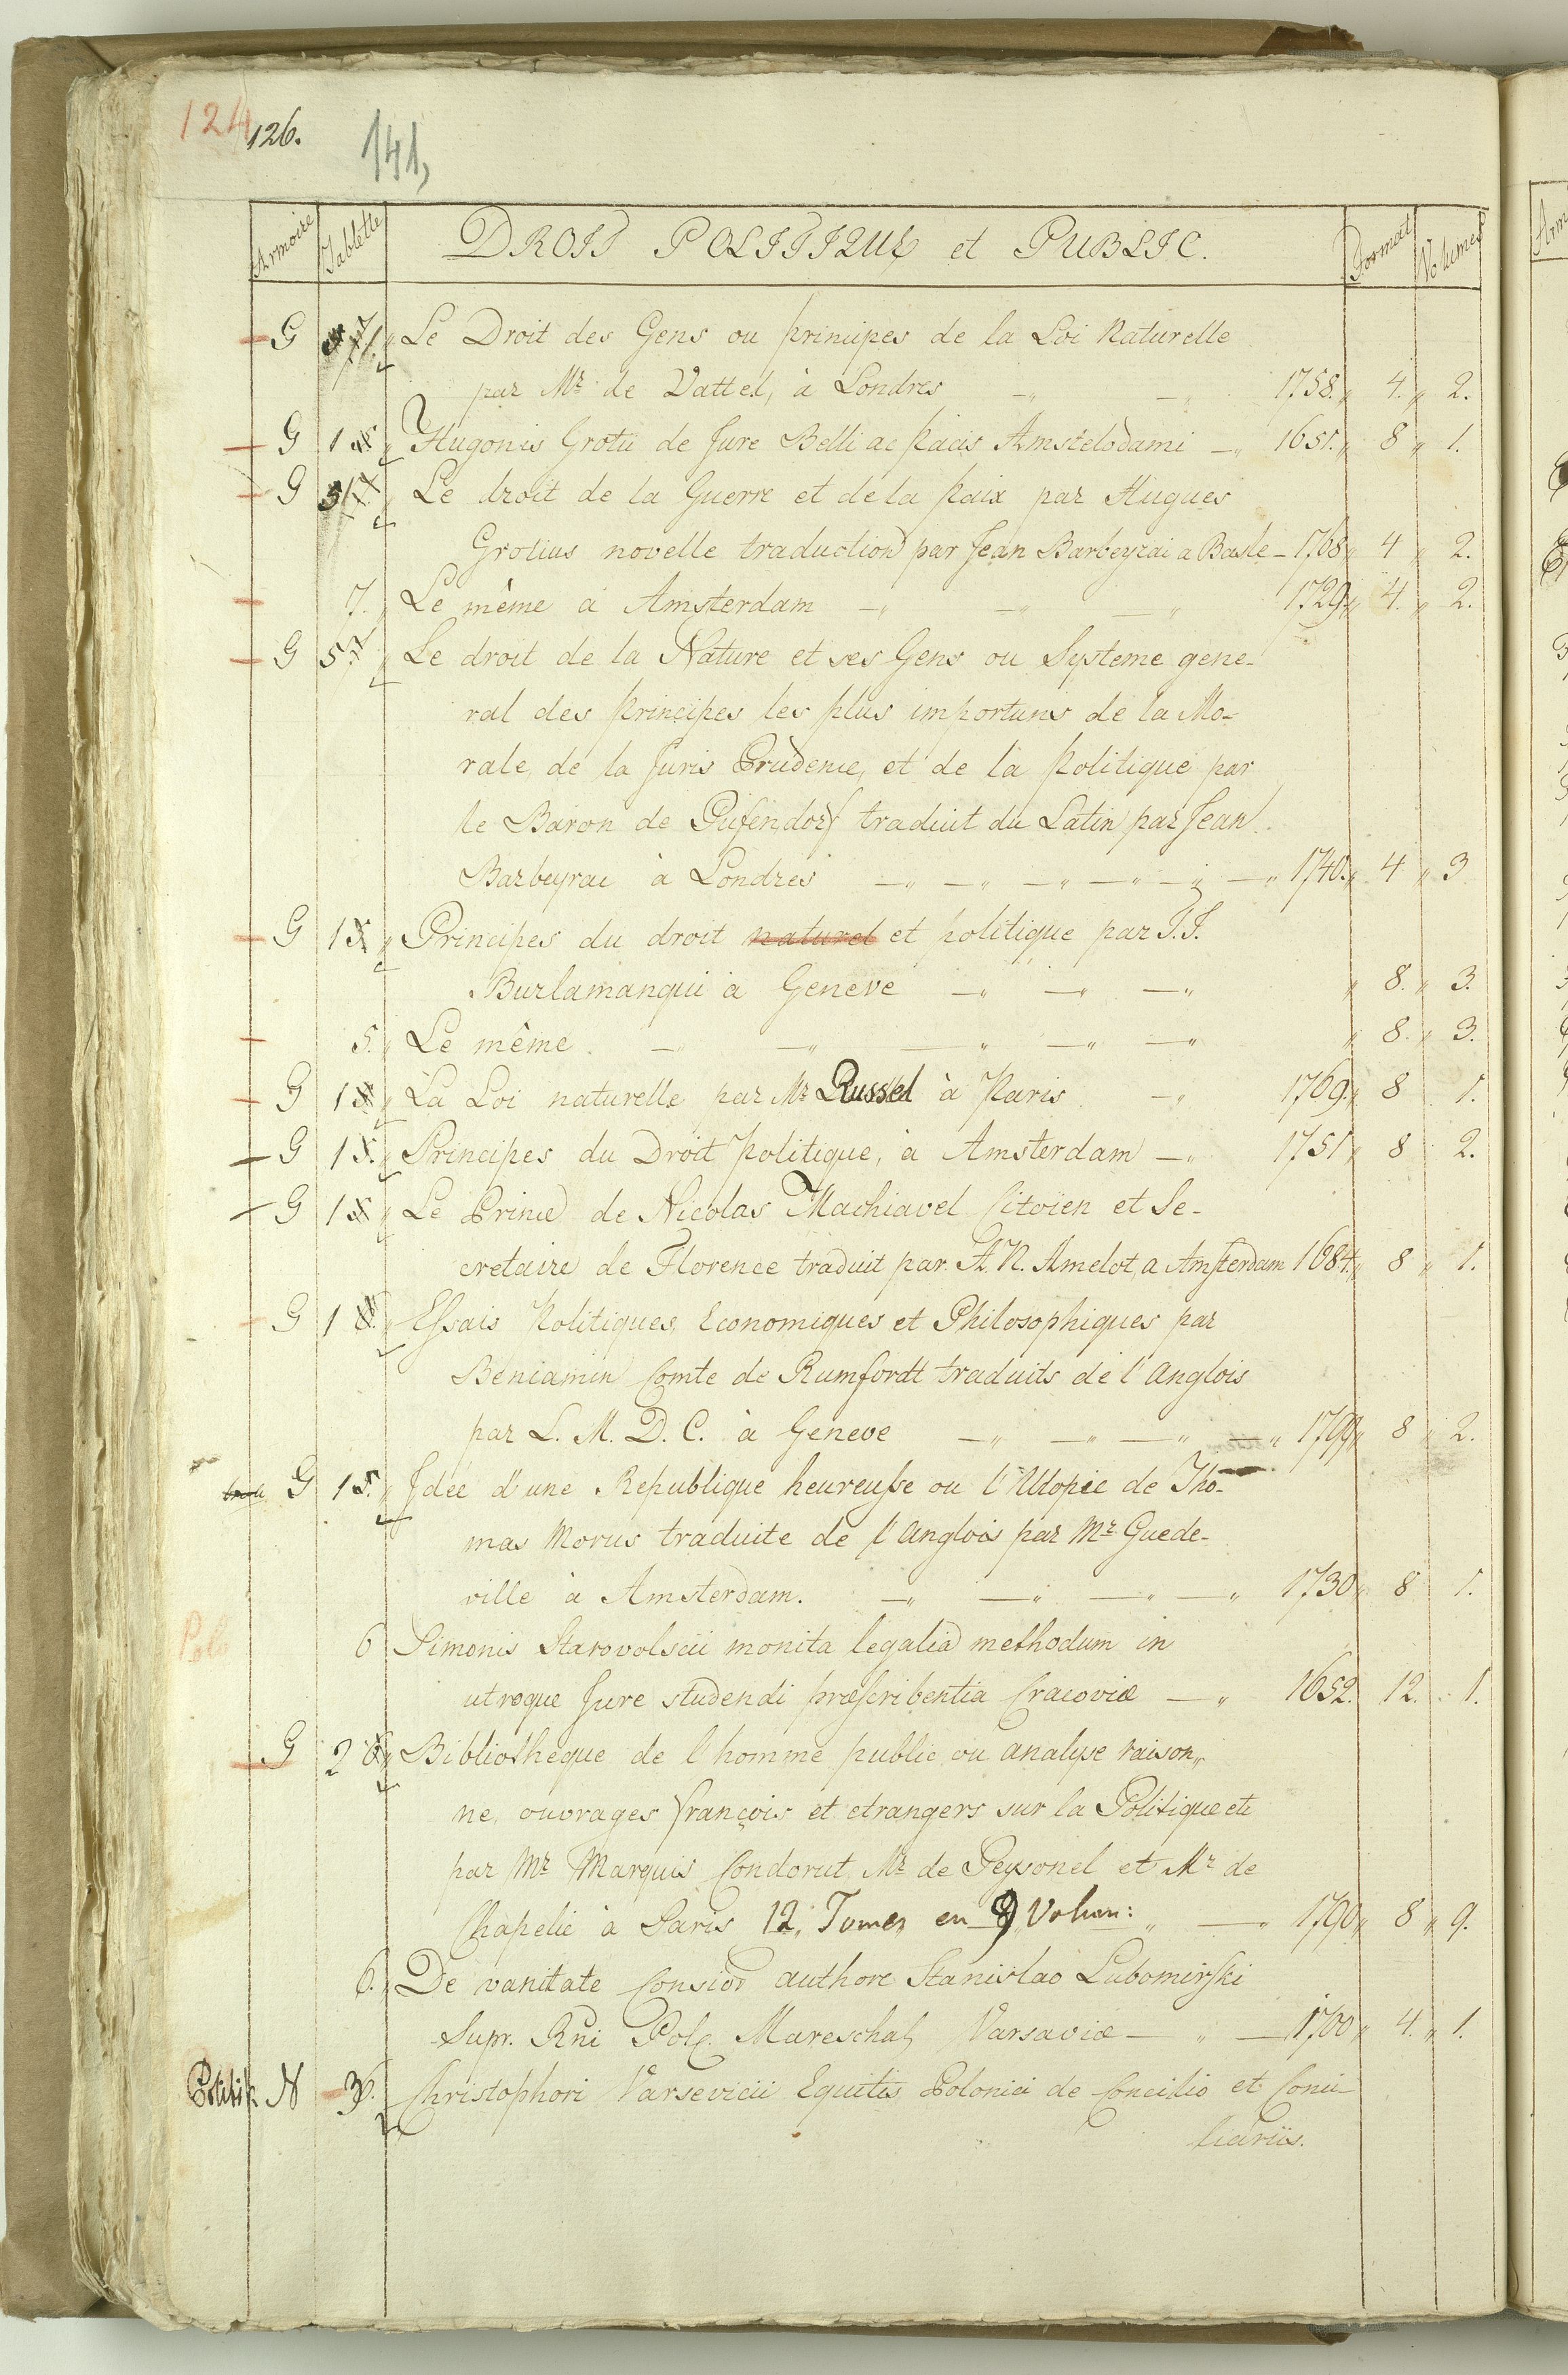 124 126. 141,
Armoire Tablette DROIT POLITIQUE et PUBLIC. Format Volumes
G Le Droit des Gens ou principes de la Loi Naturelle
par Mr de Vattel, à Londres 1758. 4. 2.
G 1 Hugonis Grotii de Jure Belli ac Pacis Amstelodami 1651. 8 1.
G Le droit de la Guerre et de la paix par Hugues
Grotius novelle traduction par Jean Barbeyrai a Basle 1768 4 2.
7. Le même à Amsterdam 1729. 4. 2.
G 5 Le droit de la Nature et ses Gens ou Systeme gene-
ral des principes les plus importuns de la Mo-
rale, de la Juris Prudence, et de la Politique par
le Baron de Pufendorf traduit du Latin par Jean
Barbeyrac à Londres 1740. 4 3
G 1 Principes du droit naturel et politique par J.J.
Burlamanqui à Geneve 8. 3.
5. Le même 8. 3.
G 1 La Loi naturelle par Mr Russel à Paris 1769. 8 1.
G 1 5. Principes du Droit politique, à Amsterdam 1751 8 2.
G 1 Le Prince de Nicolas Machiavel Citoïen et Se-
cretaire de Florence traduit par A. N. Amelot, a Amsterdam 1684. 8 1.
G 1 Essais Politiques, Economiques et Philosophiques par
Beniamin Comte de Rumfordt traduits de l'Anglois
par L. M. D. C. à Geneve 1799 8 2.
G 1 5. Idée d'une Republique heureusse ou l'Utopie de Tho-
mas Morus traduite de l'Anglois par Mr Guede-
ville à Amsterdam. 1730 8 1.
Pol 6 Simonis Starovolscii monita legalia methodum in
utroque Jure studendi præscribentia Cracoviæ 1652. 12. 1.
G 2 6 Bibliotheque de l'homme public ou analyse raison,,
ne, ouvrages françois et etrangers sur la Politique etc
par Mr Marquis Condorcet Mr de Peysonel et Mr de
Chapelie à Paris 12, Tomes en 9 Volum: 1790 8 9.
6. De vanitate Consior authore Stanislao Lubomirski
Supr. Rni Pol. Mareschal, Varsaviæ 1700 4. 1.
Politik N 3 6. Christophori Varsevicii Equitis Polonici de Concilio et Consi-
liariis.